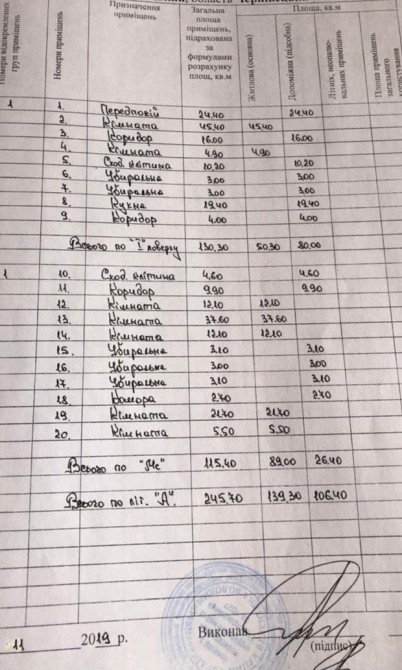 Номери відокремлених груп приміщень
Номери приміщень
Призначення приміщень
Загальна площа приміщень, підрахована за формулами розрахунку площ, кв.м
Площа, кв.м
Житлова (основна)
Допоміжна (підсобна)
Літніх, неопалювальних приміщень
Площа приміщень загального користування
1 1. Передпокій 24.40 24.40
2. Кімната 45.40 45.40
3. Коридор 16.00 16.00
4. Кімната 4.90 4.90
5. Сход. клітина 10,20 10,20
6. Убиральна 3.00 3.00
7. Убиральна 3.00 3.00
8. Кухня 19.40 19.40
9. Коридор 4.00 4.00
Всього по "I" поверху 130,30 50,30 80.00
1 10. Сход. клітина 4.60 4.60
11. Коридор 9.90 9.90
12. Кімната 12.10 12.10
13. Кімната 37.60 37.60
14. Кімната 12.10 12.10
15. Убиральна 3.10 3.10
16. Убиральна 3.00 3.00
17. Убиральна 3.10 3.10
18. Комора 2.70 2.70
19. Кімната 21.70 21.70
20. Кімната 5.50 5.50
Всього по "Мс" 115.40 89,00 26.40
Всього по літ. "А" 245.70 139.30 106.40
11 2019 р. Виконав
(підпис)